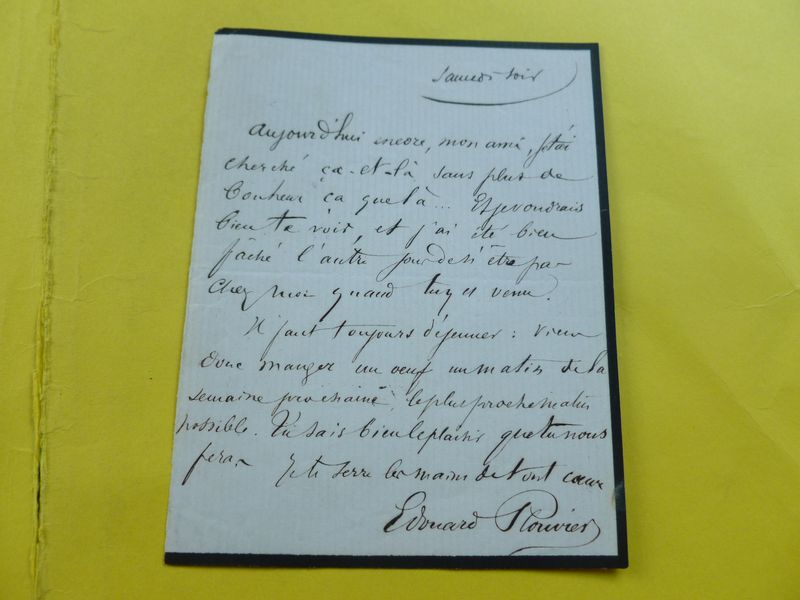 Samedi soir
Aujourd'hui encore, mon ami, je t'ai
cherché çà-et-là sans plus de
bonheur ça que là... Et je voudrais
bien te voir, et j'ai été bien
fâché l'autre jour de n'être pas
chez moi quand tu y es venu.
Il faut toujours déjeuner : viens
donc manger un oeuf un matin de la
semaine prochaine, le plus proche matin
possible. Tu sais bien le plaisir que tu nous
feras. Je te serre les mains de tout coeur
Edouard Plouvier